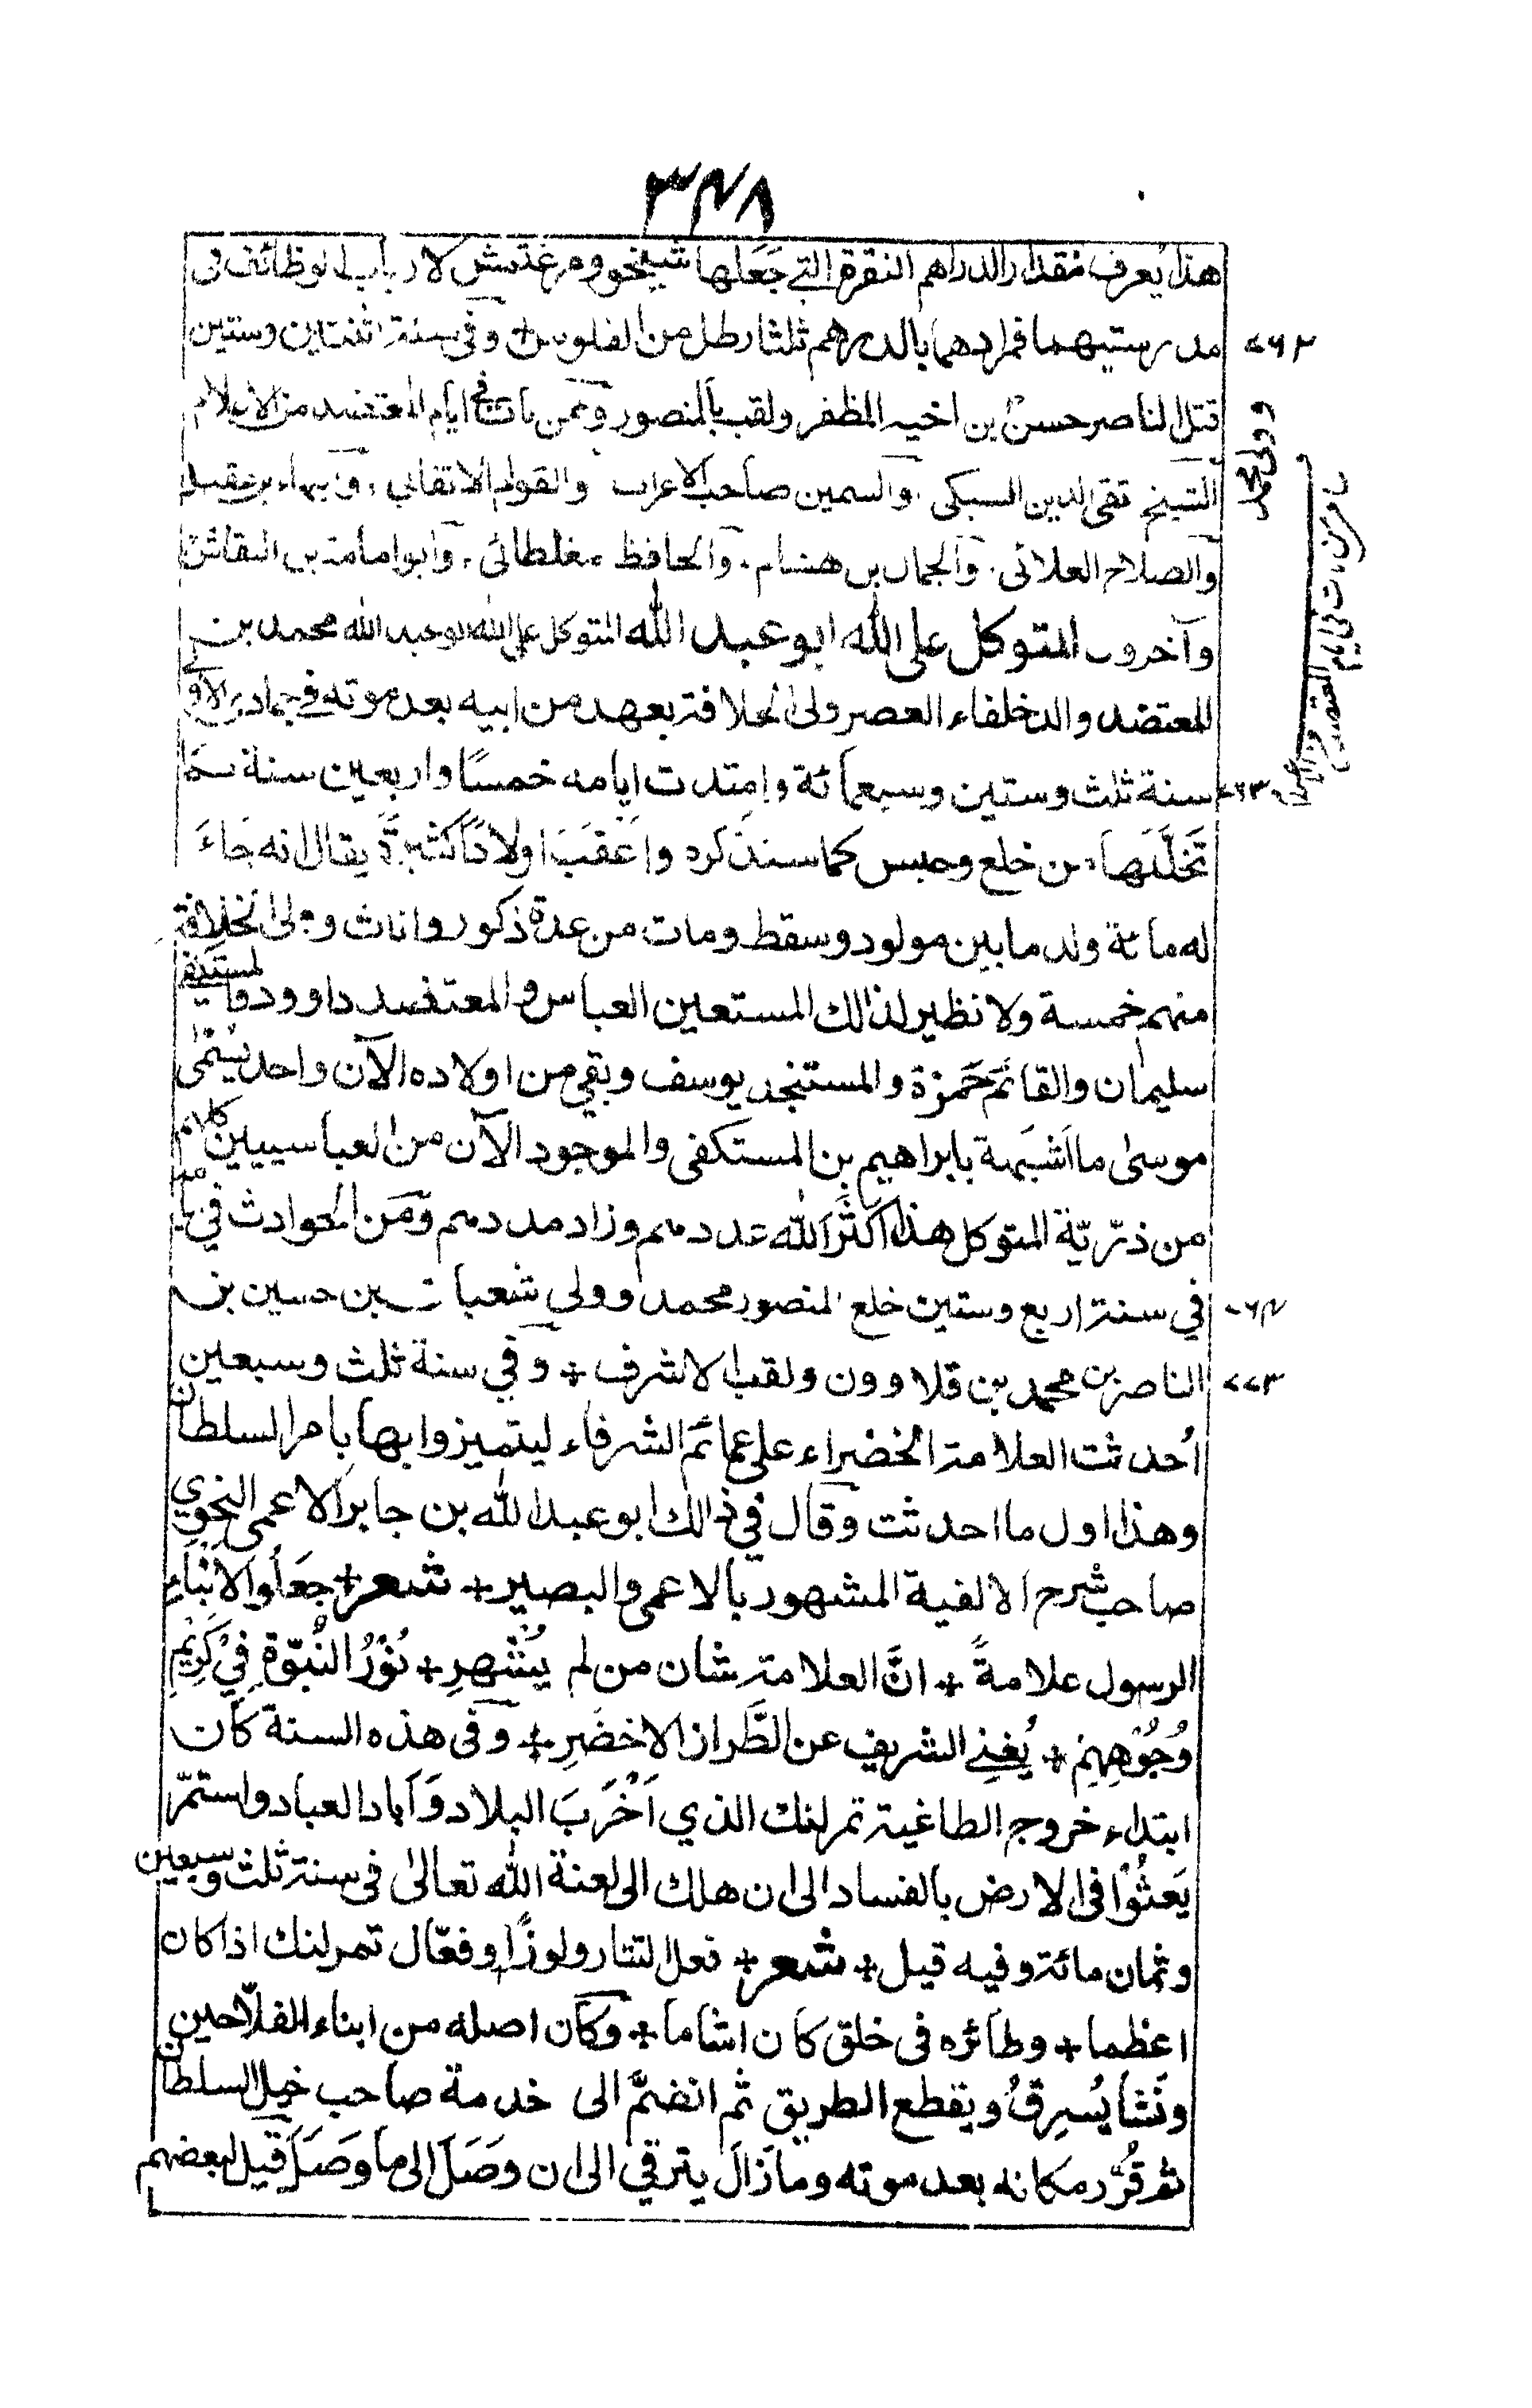 ٣٤٨
هذا يُعرف مقدار الدراهم النقرة التي جَعَلها شيخو وصرغتمش لارباب الوظائف فى
مدرستيهما فمرادهما بالدرهم ثلثا رطل من الفلوس + وفى سنة اثنتين وستين
٧٦٢
قتل الناصر حسن بن اخيه المظفر ولقب بالمنصور وممن مات فى ايام المعتضد من الاعلام
وولى محمد
الشيخ تقى الدين السبكى . والسمين صاحب الاعراب والقوام الاتقانى . والبهاء بن عقيل
والصلاح العلائى . والجمال بن هشام . والحافظ مغلطائى . وابو امامة بن النقاش
وآخرون المتوكل على الله ابو عبد الله المتوكل على الله ابو عبد الله محمد بن
المعتضد والد خلفاء العصر ولى الخلافة بعهد من ابيه بعد موته فى جمادى الاولى
سنة ثلث وستين وسبعمائة وامتدت ايامه خمسًا واربعين سنة بما
٧٦٣
تَخَلَّلَها من خلع وحبس كما سنذكره واعقَبَ اولادًا كثيرةً يقال انه جَاءَ
له مائة ولد ما بين مولود وسقط ومات من عدة ذكور واناث وولى الخلافة
منهم خمسة ولا نظير لذالك المستعين العباس والمعتضد داوود والمستكفى
سليمان والقائم حَمزة والمستنجد يوسف وبقي من اولاده الآن واحد يُسَمّى
موسىٰ ما اَشبَهَهُ بابراهيم بن المستكفى والموجود الآن من العباسيين كلهم
من ذرّيّة المتوكل هذا اَكثَرَ الله عددهم وزاد مددهم وَمن الحوادث في
في سنة اربع وستين خلع المنصور محمد وولي شعبان بن حسين بن
٧٦٤
الناصر بن محمد بن قلاوون ولقب الاشرف + وفي سنة ثلث وسبعين
٧٧٣
اُحدثت العلامة الخضراء على عمائم الشرفاء ليتميزوا بها بامر السلطان
وهذا اول ما احدثت وقال في ذالك ابو عبد الله بن جابر الاعمى النحوي
صاحب شرح الالفية المشهور بالاعمى والبصير + شعر + جَعَلُوا لابْنَاءِ
الرسول علامةً + انَّ العلامة شان من لم يُشْهِرِ + نُوْرُ النُّبُوّةِ فِيْ كَرِيْمِ
وُجُوْهِهِمْ + يُغْنِي الشريف عن الطِّراز الاخضَرِ + وفى هذه السنة كان
ابتداء خروج الطاغية تمرلنك الذي اَخْرَبَ البلاد وَاَباد العباد واستمرّ
يَعثُوْا فى الارض بالفساد الى ان هلك الى لعنة الله تعالى فى سنة ثلث وسبعين
وثمان مائة وفيه قيل + شعر + فعل التتار ولوزًا وفعّال تمرلنك اذا كان
اعظما + وطائره فى خلق كان اشاما + وكان اصله من ابناء الفلّاحين
ونَشأ يُسرِقُ ويقطع الطريق ثم انضمَّ الى خدمة صاحب خيل السلطان
ثم قُرِّر مكانه بعد موته وما زال يترقي الى ان وصَلَ الى ما وَصَلَ قيل لبعضهم